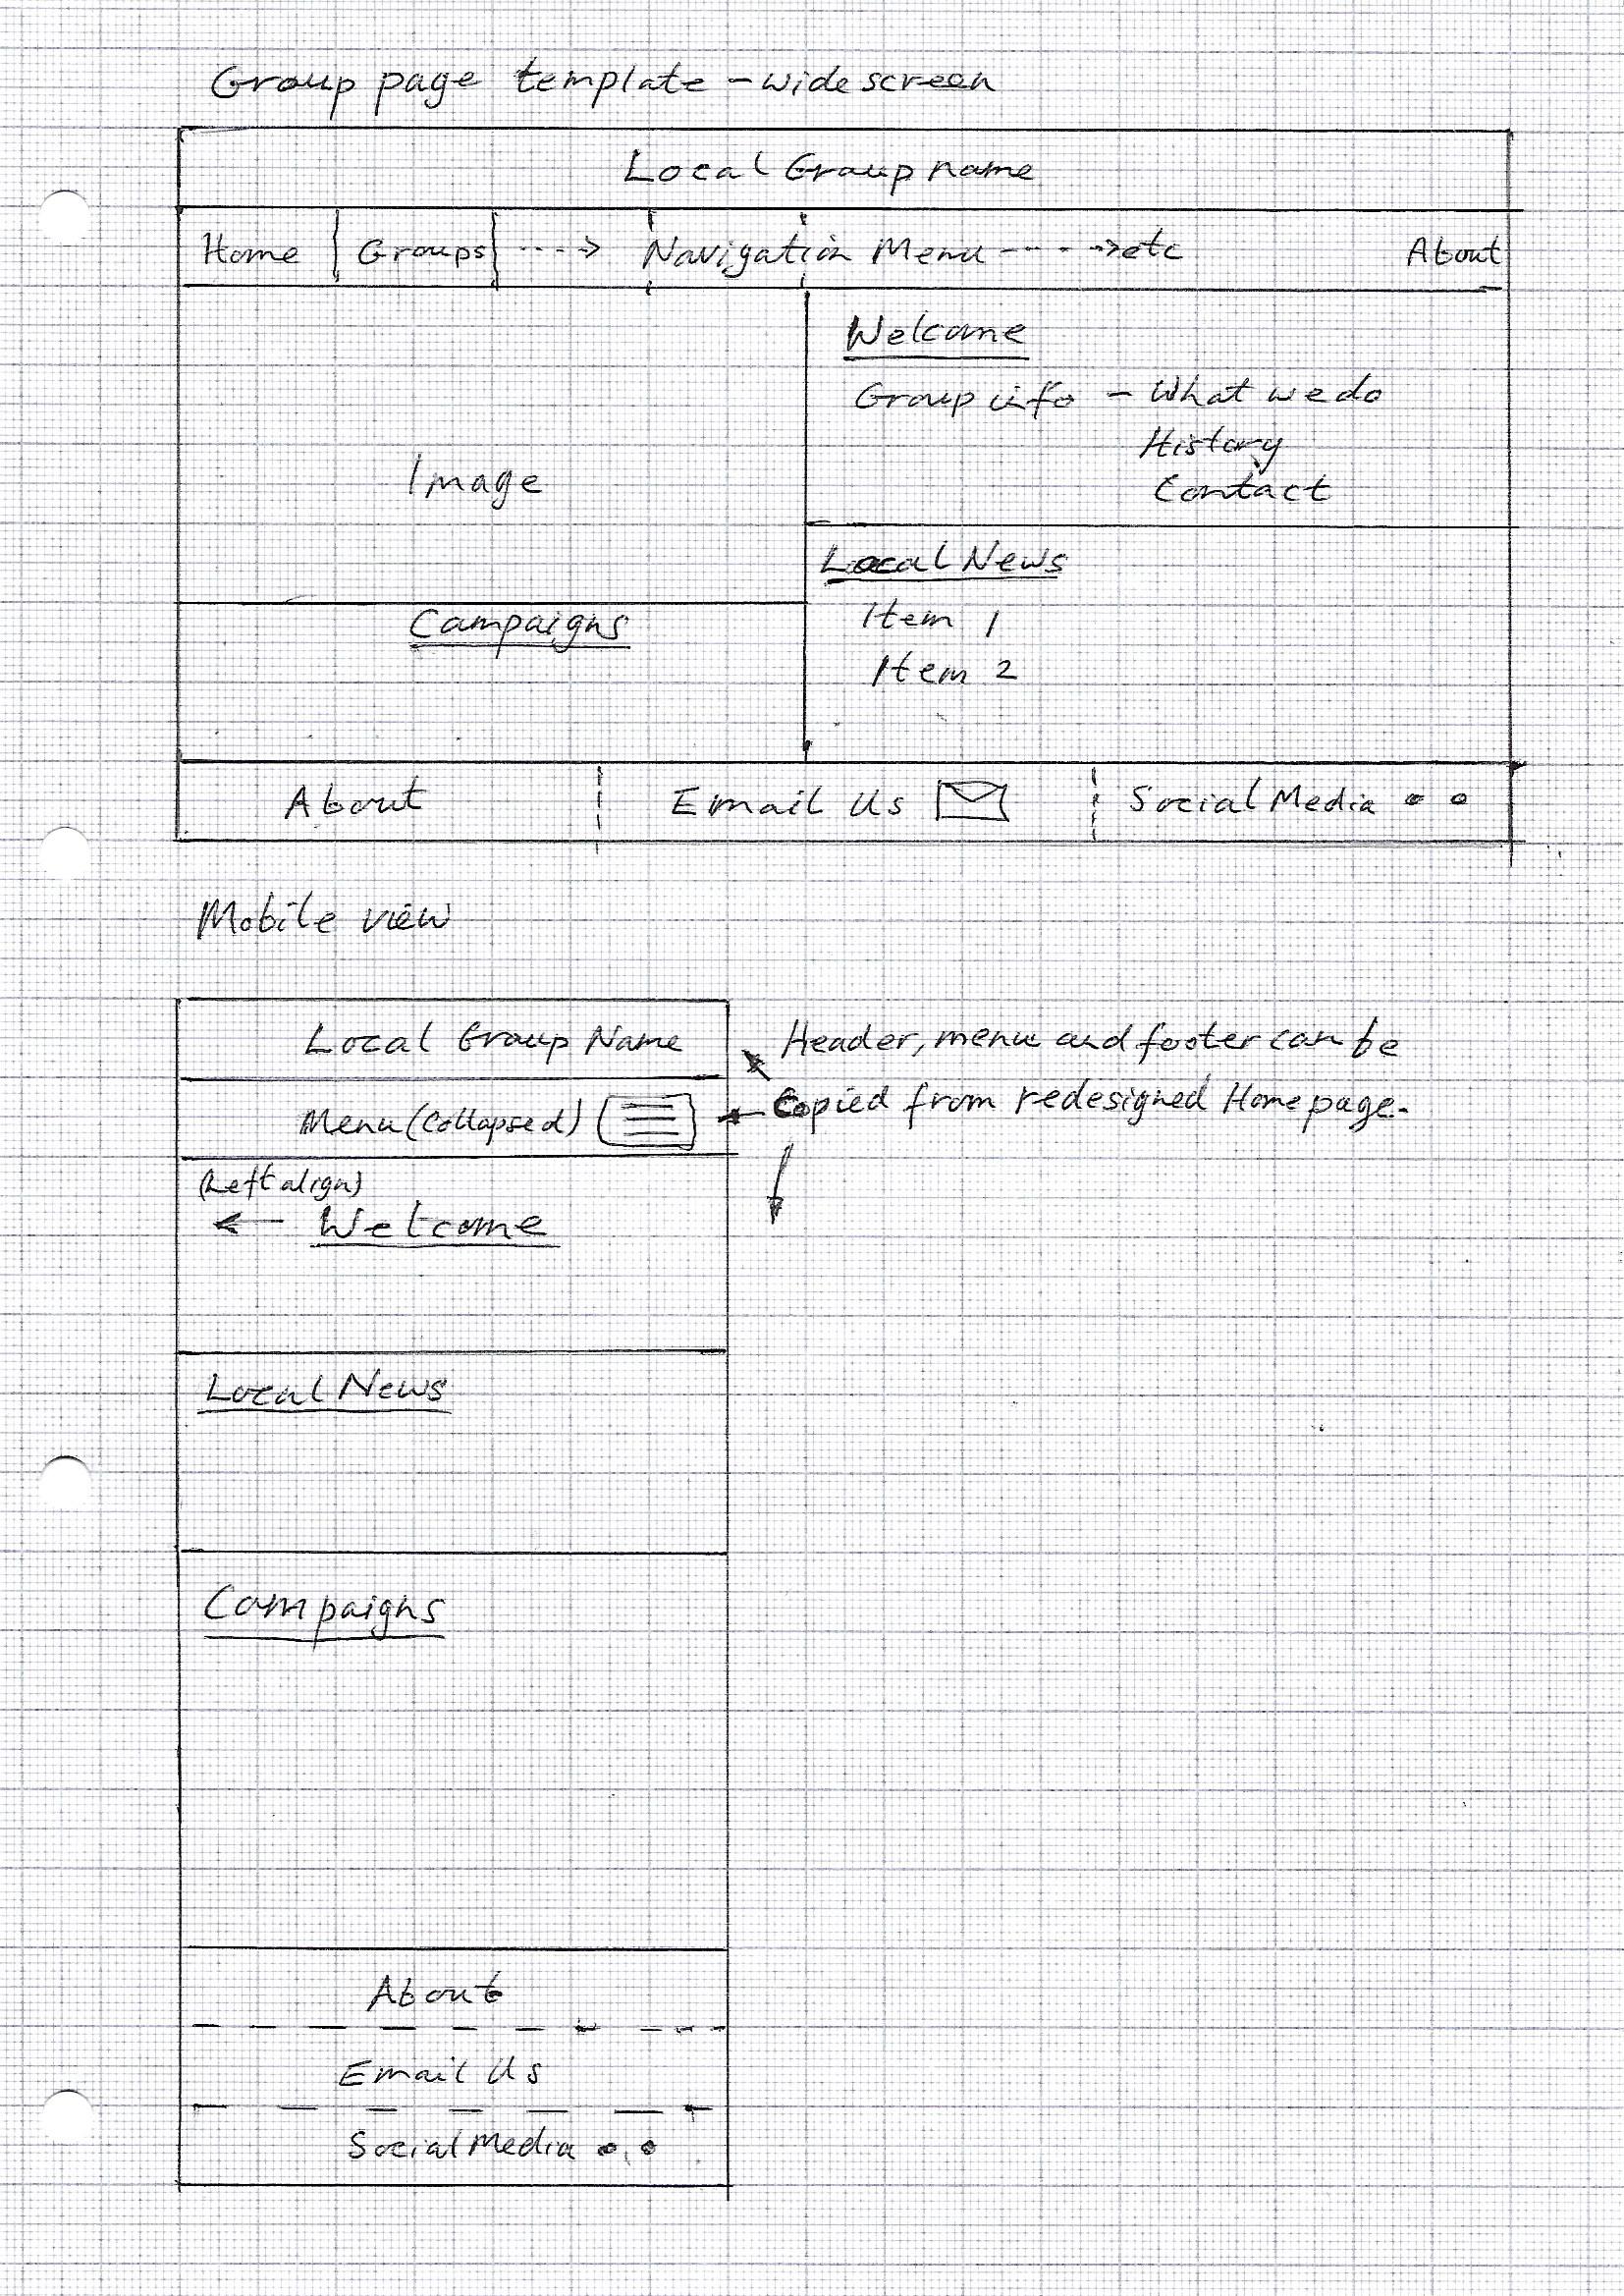 Group page template - wide screen
Local Group name
Home Groups ---> Navigation Menu ----> etc About
Welcome
Group info - What we do
History
Contact
Image
Local News
Item 1
Item 2
Campaigns
About Email Us Social Media
Mobile view
Local Group Name
Menu (Collapsed)
Header, menu and footer can be
Copied from redesigned Home page.
(Left align)
Welcome
Local News
Campaigns
About
Email Us
Social Media